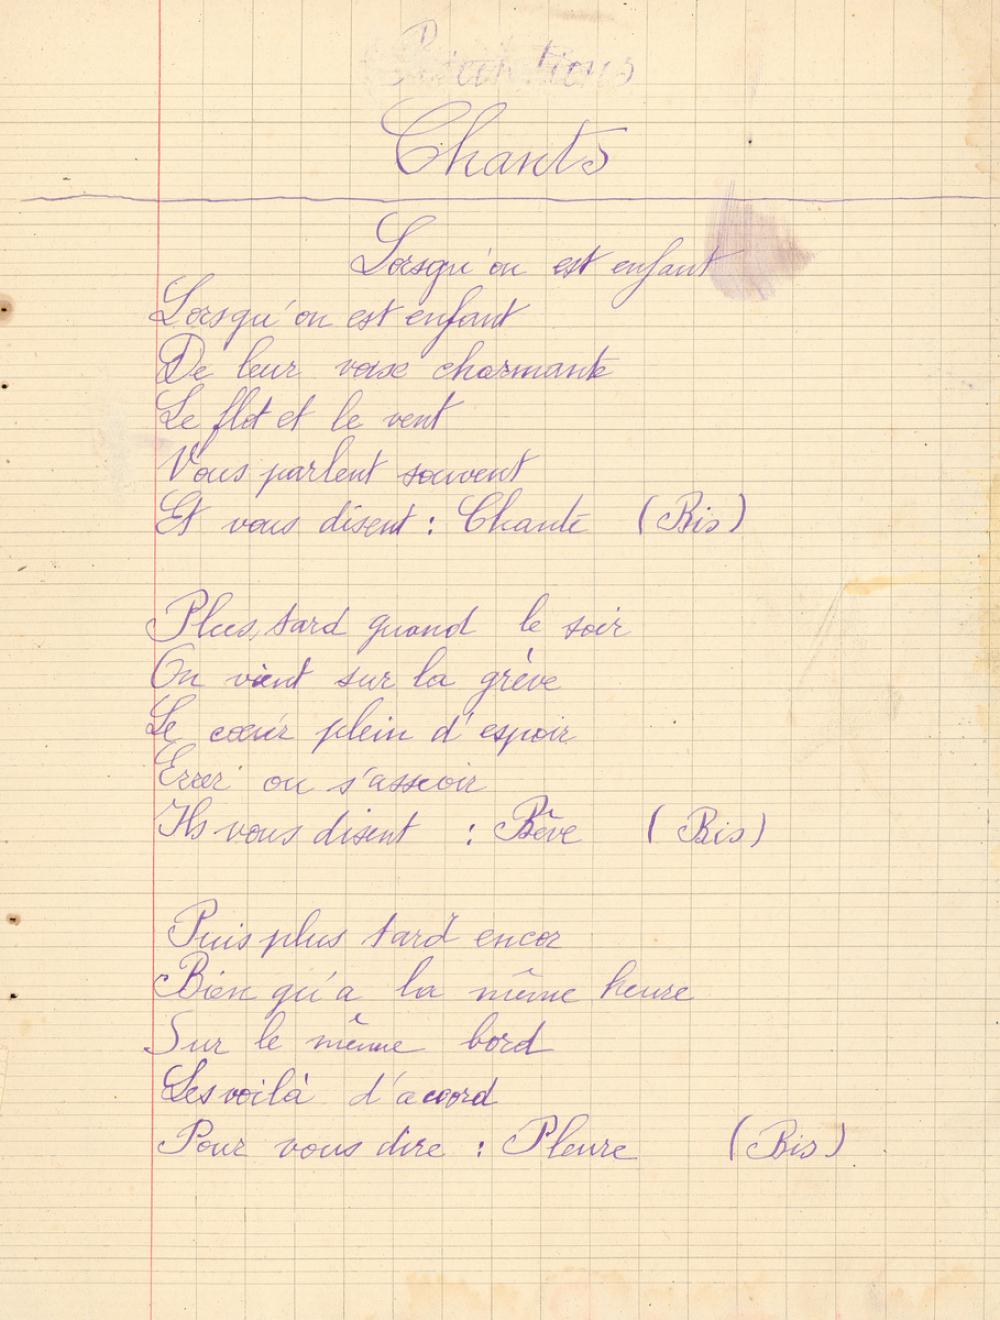 Récitations
Chants
Lorsqu'on est enfant
Lorsqu'on est enfant
De leur voix charmante
Le flot et le vent
Vous parlent souvent
Et vous disent : Chante (Bis)
Plus tard quand le soir
On vient sur la grève
Le cœur plein d'espoir
Errer ou s'asseoir
Ils vous disent : Rêve (Bis)
Puis plus tard encor
Bien qu'a la même heure
Sur le même bord
Les voilà d'accord
Pour vous dire : Pleure (Bis)